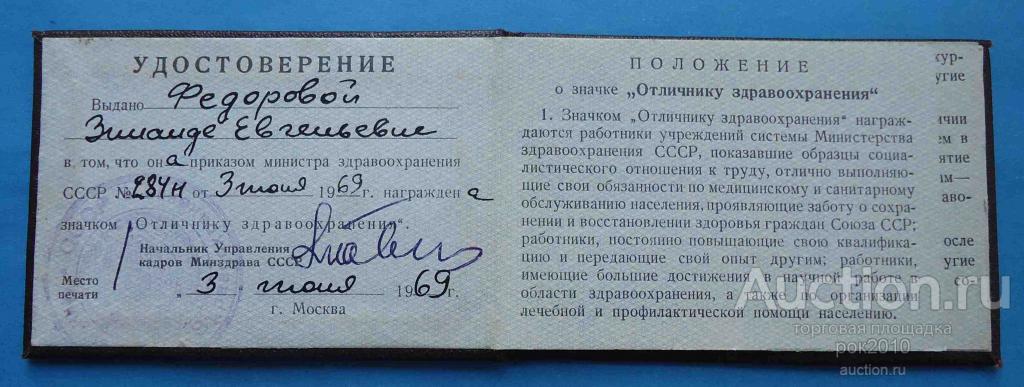 УДОСТОВЕРЕНИЕ
Выдано Федоровой
Зинаиде Евгеньевне
в том, что она приказом министра здравоохранения
СССР № 284н от 3 июля 1969г. награждена
значком „Отличнику здравоохранения“.
Начальник Управления
кадров Минздрава СССР
Место
печати
„3“ июля 1969г.
г. Москва
ПОЛОЖЕНИЕ
о значке „Отличнику здравоохранения“
1. Значком „Отличнику здравоохранения“ награж-
даются работники учреждений системы Министерства
здравоохранения СССР, показавшие образцы социа-
листического отношения к труду, отлично выполняю-
щие свои обязанности по медицинскому и санитарному
обслуживанию населения, проявляющие заботу о сохра-
нении и восстановлении здоровья граждан Союза ССР;
работники, постоянно повышающие свою квалифика-
цию и передающие свой опыт другим; работники,
имеющие большие достижения в научной работе в
области здравоохранения, а также по организации
лечебной и профилактической помощи населению.
сур-
угие
ичии
ем в
ятие
им—
аво-
осле
угие
со-
Auction.ru
торговая площадка
рок2010
auction.ru